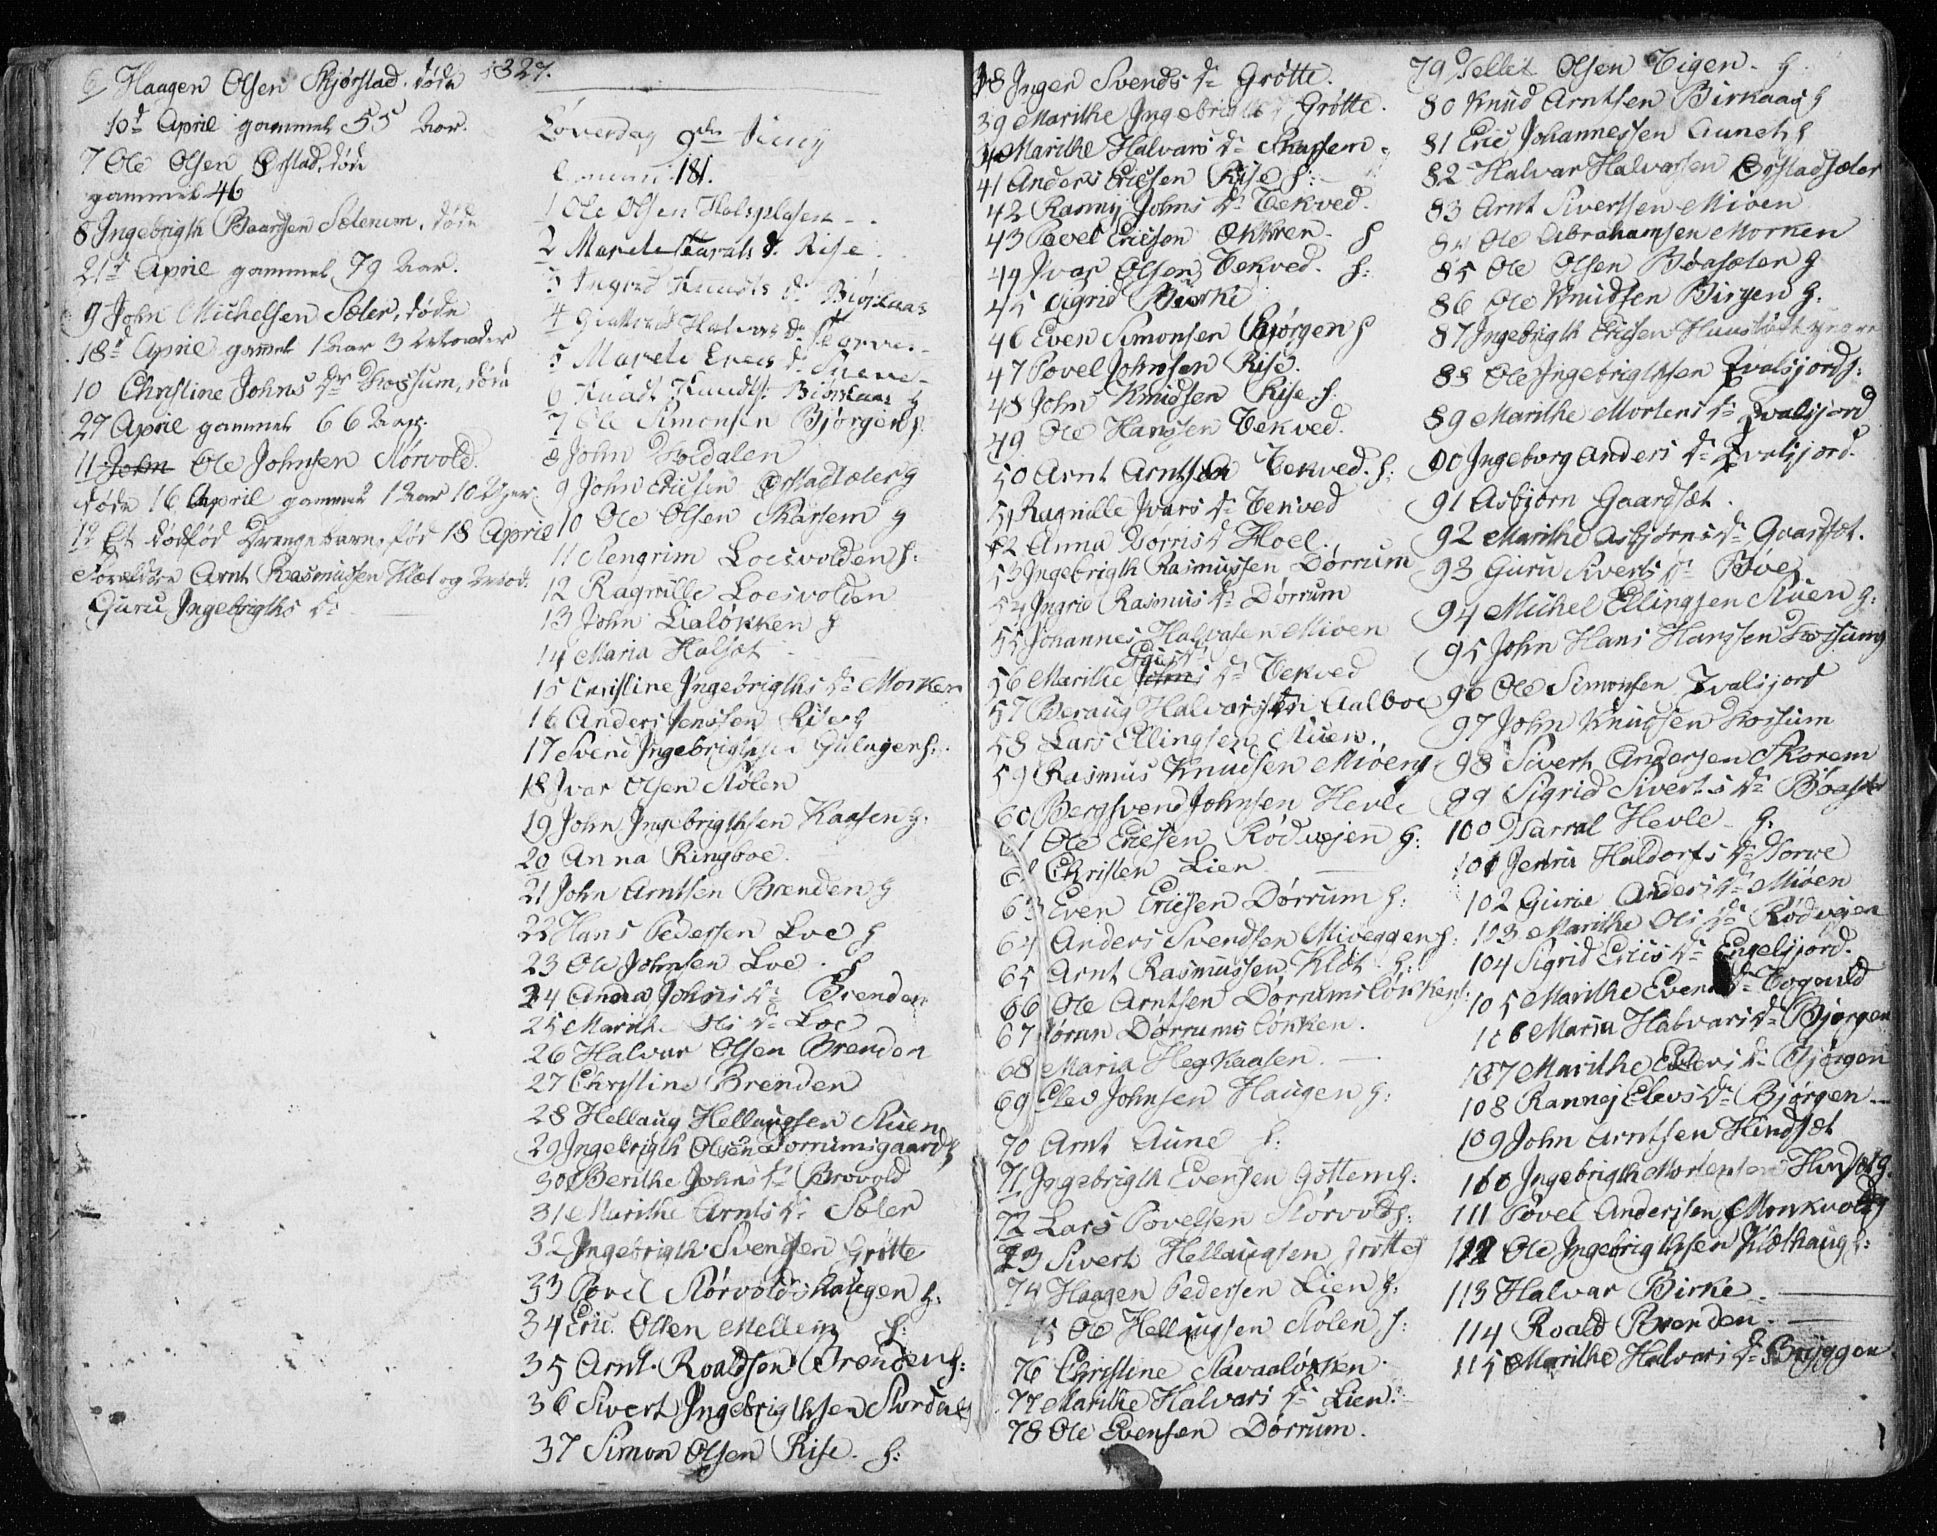 6/ Haagen Olsen Skjørstad. døde
10d April gammel 55 Aar.
7 Ole Olsen Ørstad, døde
gammel 46
8 Ingebrigth Baardsen Sæterum, døde
21d April gammel 79 Aar.
9 John Michelsen Sæter, døde
18d April gammel 1 Aar 3
10 Christine Johns Dr Tossum, døde
27 April gammel 66 Aar.
11 John Ole Johnsen Størvold.
døde 16 April gammel 1 Aar 10 Uger
12 Et dødfød Drengebarn, fød 18 April
Forældre Arnt Rasmussen Klæt og
Guru Ingebrigths Dr
1827.
Løverdag 9de Juny
181.
1 Ole Olsen Holsplasen
2 Marele Dr. Rise
3 Ingred Knudts Dr Biørkaas
4 Halvors Dr
5 Marele Erecs Dr
6 Knudt Knudts: Biørkaas
7 Ole Simonsen Bjørgen
8 John Voldalen
9 John Ericsen Ørstadsæter
10 Ole Olsen Skarsem
11 Stengrim Loesvolden
12 Ragnille Loesvolden
13 John Lialøkken
14 Maria Halsæt
15 Christine Ingebrigths Dr Morken
16 Anders Jenssen Rise
17 Svend Ingebrigthsen Gulagen
18 Ivar Olsen Stølen
19 John Ingebrigthsen Kaasen
20 Anna Ringboe.
21 John Arntsen Brenden
22 Hans Pedersen Loe
23 Ole Johnsen Loe.
24 Anna Johns Dr Brenden
25 Marithe Ols Dr Loe
26 Halvar Olsen Brenden
27 Christine Brenden
28 Hellaug Hellaugsen Stuen
29 Ingebrigth Olsen Dørrumsgaard
30 Berithe Johns Dr Brovold
31 Marithe Arnts Dr Sæter
32 Ingebrigth Svendsen Grøtte
33 Povel Størvoldshaugen
34 Eric Olsen Mellem
35 Arnt Roaldsen Brenden
36 Sivert Ingebrigthsen Stordal
37 Simon Olsen Rise.
38 Inger Svends Dr Grøtte.
39 Marithe Ingebrigths Dr Grøtte.
40 Marithe Halvars Dr Skarsem
41 Anders Ericsen Rise
42 Ranny Johns Dr Vekved.
43 Povel Ericson Økkren
44 Ivar Olsen Vekved.
45 Sigrid Børke
46 Even Simonsen Bjørgen
47 Povel Johnsen Rise.
48 John Knudsen Rise
49 Ole Hanssen Vekved.
50 Arnt Arntsen Vekved.
51 Ragnille Ivars Dr Vekved
52 Anna Dorris Dr Hoel.
53 Ingebrigth Rasmussen Dørrum
54 Ingrid Rasmus Dr Dørrum
55 Johannes Halvarsen Miøen
56 Marithe Johns Dr Vekved
57 Beraug Halvars Dr Aalboe
58 Lars Ellingsen Stuen.
59 Rasmus Knudsen Miøen
60 Bergsvend Johnsen Hevle
61 Ole Ericsen Rødvejen
62 Christen Lien
63 Even Ericsen Dørrum
64 Anders Svendsen Miveggen
65 Arnt Rasmussen Klæt.
66 Ole Arntsen Dørrumsløkken
67 Jøran Dørrumsløkken.
68 Maria Hegkaasen.
69 Elev Johnsen Haugen
70 Arnt Aune
71 Ingebrigth Evensen Gottem
72 Lars Povelsen Størvold
73 Sivert Hellaugsen Grøtte
74 Haagen Pedersen Lien
75 Ole Hellaugsen Stølen
76 Christine Stavaaløkken
77 Marithe Halvars Dr Lien.
78 Ole Evensen Dørrum.
79 Pellet Olsen Vigen.
80 Knud Arntsen Birkaag
81 Eric Johannessen Aunet
82 Halvar Halvarsen Ørstadsæter
83 Arnt Sivertsen Miøen
84 Ole Abrahamsen Morken
85 Ole Olsen Bøasæter
86 Ole Knudsen Birgen
87 Ingebrigth Ericsen
88 Ole Ingebrigthsen Hvalsjord
89 Marithe Mortens Dr Hvalsjord
90 Ingeborg Anders Dr Hvalsjord.
91 Asbjørn Gaardsæt.
92 Marithe Asbjørns Dr Gaardsæt.
93 Guru Siverts Dr Bøe
94 Michel Ellingsen Stuen
95 John Hans Hanssen Tossum
96 Ole Simonsen Hvalsjord
97 John Knudsen Tossum
98 Sivert Andersen Skorem
99 Sigrid Siverts Dr Bøasæt
100 Harral Hevle
101 Jenru Haldorfs Dr Horve
102 Gurie Anders Dr Miøen
103 Marithe Ols Dr Rødvejen
104 Sigrid Erics Dr Engelsjord.
105 Marithe Evens Dr Vognild
106 Maria Halvars Dr Bjørgen
107 Marithe Elevs Dr Bjørgen
108 Rannej Elevs Dr Bjørgen
109 John Arntsen Hindsæt
110 Ingebrigth Mortensen Hindsæt
111 Povel Andersen Monkvold
112 Ole Ingebrigthsen Klæthaug
113 Halvar Birke.
114 Roald Brenden.
115 Marithe Halvars Dr Bryggen